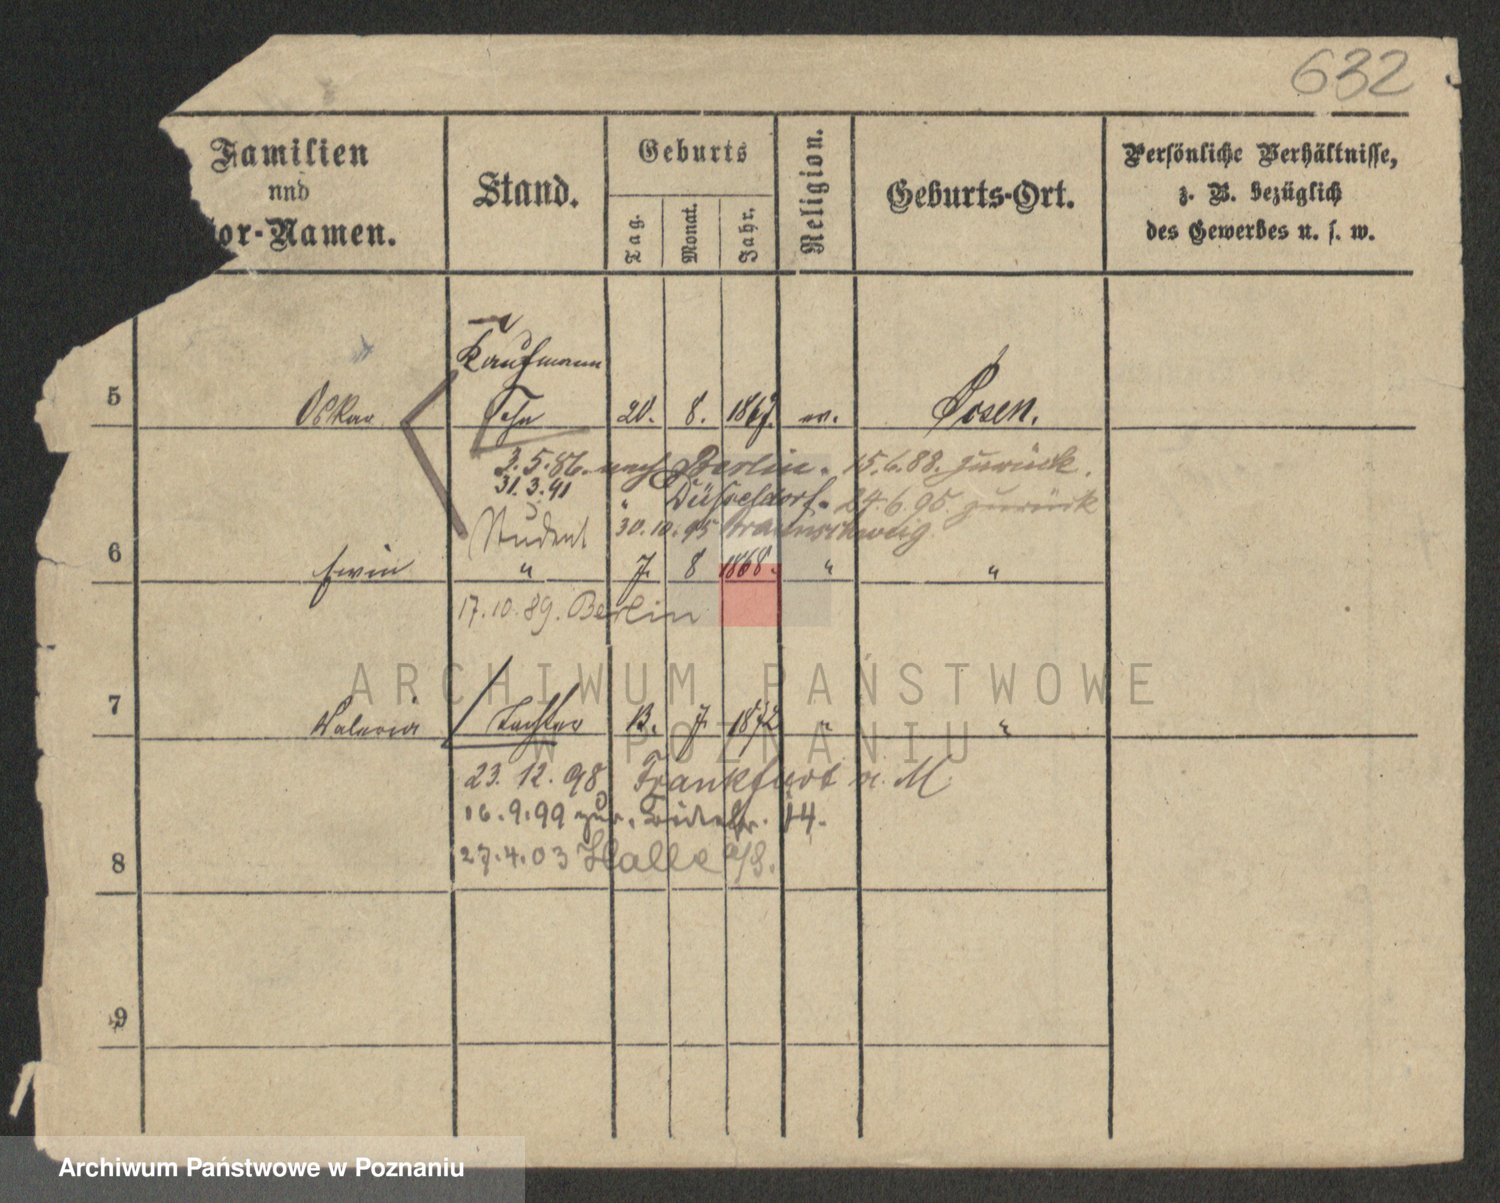 632
Familien
und
or-Namen.
Stand.
Geburts
Tag.
Monat.
Jahr.
Religion.
Geburts-Ort.
Persönliche Verhältnisse,
z. B. bezüglich
des Gewerbes u. s. w.
Kaufmann
5 Oskar Sohn 20. 8. 1867. ev. Posen.
3.5.86. nach Berlin. 15.6.88. zurück.
31.3.91 " Düsseldorf. 24.6.95. zurück
Student 30.10.95 Braunschweig
6 Erwin " 7. 8 1868. " "
17.10.89. Berlin
7 Valeria Tochter 13. 7. 1872 " "
23.12.98 Frankfurt a. M
16.9.99 zur. 14.
27.4.03 Halle a/S.
8
9
ARCHIWUM PAŃSTWOWE
W POZNANIU
Archiwum Państwowe w Poznaniu